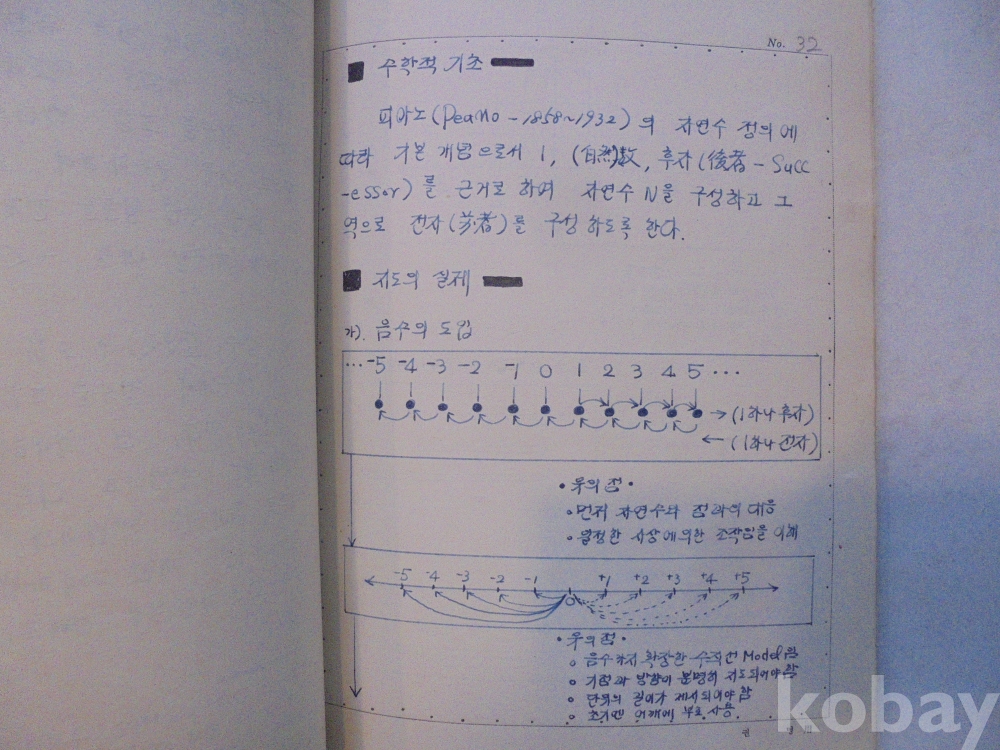 No. 32
■ 수학적 기초
피아노(Peano - 1858~1932)의 자연수 정의에
따라 기본 개념으로서 1, (自然)數, 후자(後者 - Succ
-essor)를 근거로 하며 자연수 N을 구성하고 그
역으로 전자(前者)를 구성 하도록 한다.
■ 지도의 실제
가). 음수의 도입
···-5 -4 -3 -2 -1 0 1 2 3 4 5 ···
→ (1하나 후자)
← (1하나 전자)
• 유의점 •
• 먼저 자연수와 점과의 대응
• 일정한 시상에 의한 조작임을 이해
-5 -4 -3 -2 -1 +1 +2 +3 +4 +5
0
• 유의점 •
o 음수까지 확장한 수직선 Model임
o 기점과 방향이 분명히 지도되어야 함
o 단위의 길이가 제시되어야 함
o 초기엔 어깨에 부호 사용.
kobay